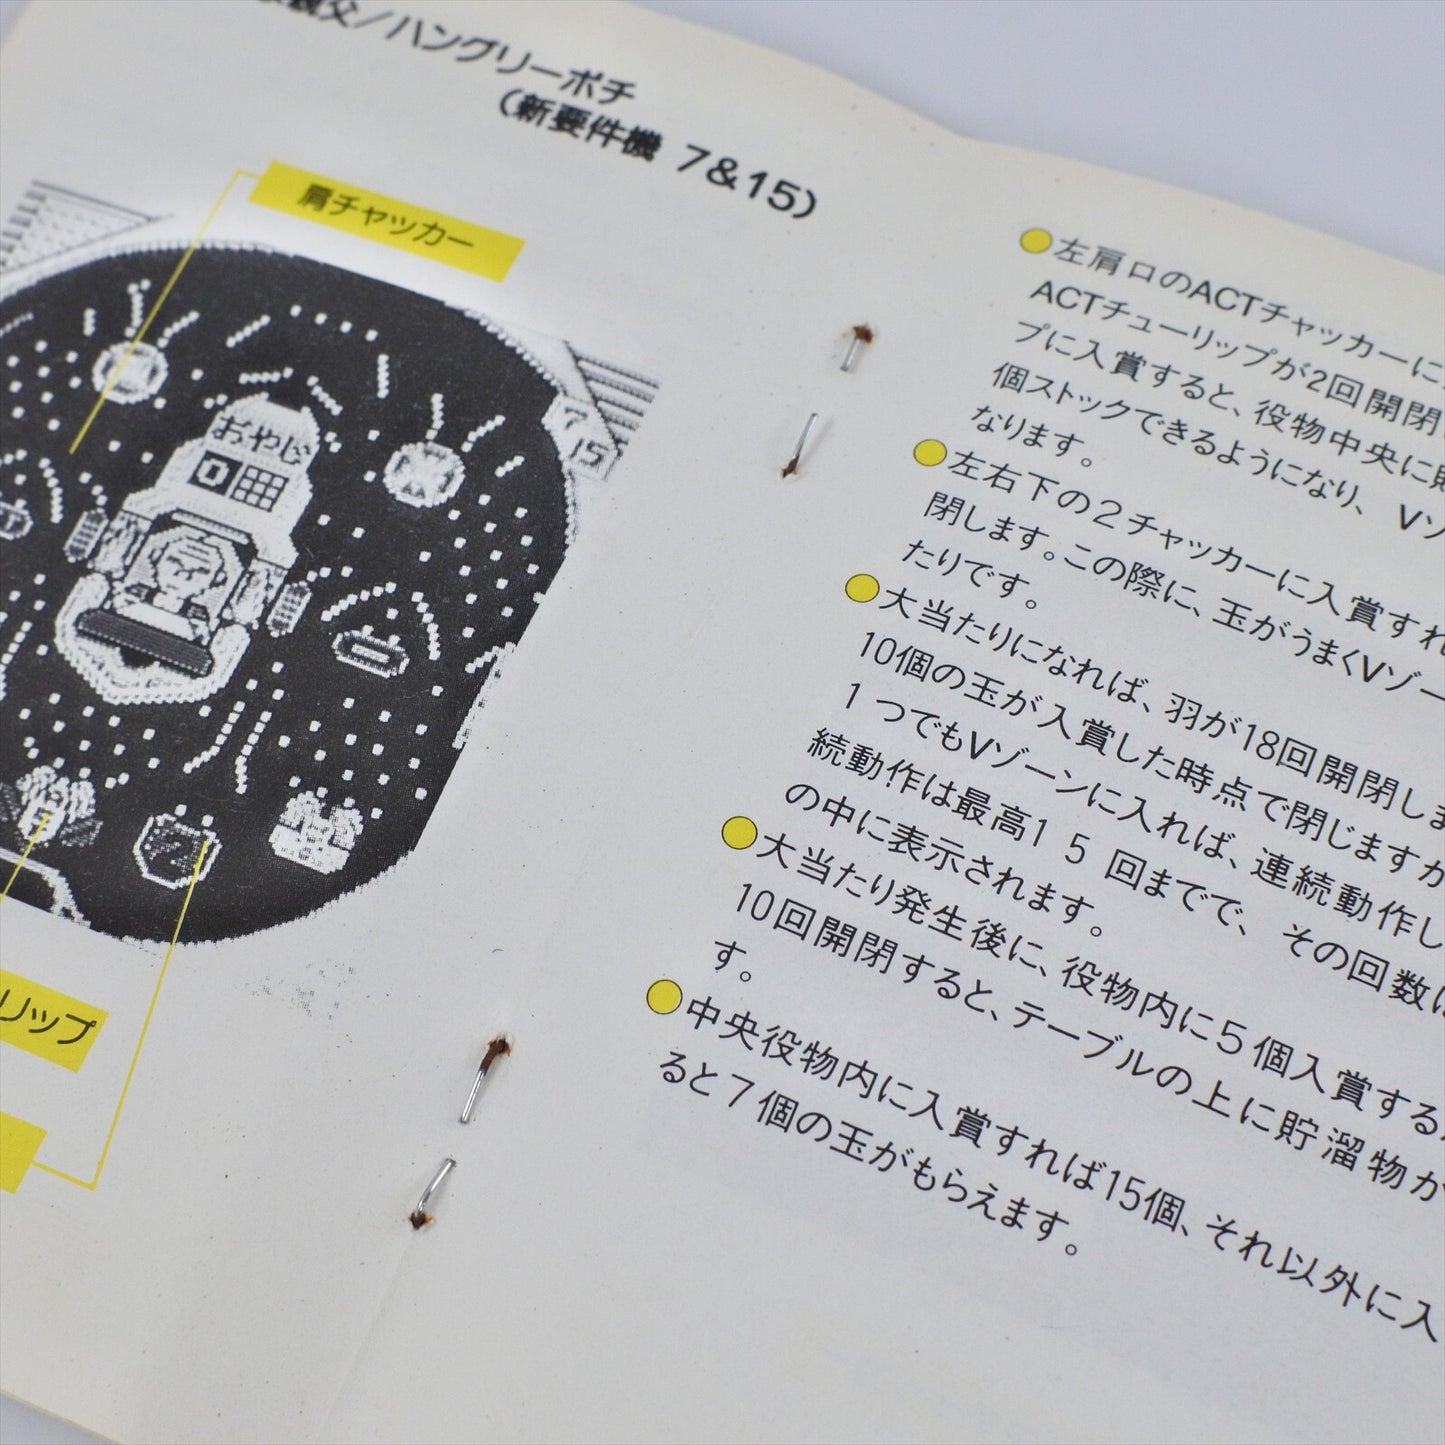 親父／ハングリーポチ
（新要件機 7&15）
肩チャッカー
おやじ
0
7
15
2
リップ
左肩口のACTチャッカーに
ACTチューリップが2回開閉
プに入賞すると、役物中央に貯
個ストックできるようになり、Vゾ
なります。
左右下の2チャッカーに入賞すれ
閉します。この際に、玉がうまくVゾー
たりです。
大当たりになれば、羽が18回開閉しま
10個の玉が入賞した時点で閉じますが
1つでもVゾーンに入れば、連続動作し
続動作は最高15回までで、その回数は
の中に表示されます。
大当たり発生後に、役物内に5個入賞する
10回開閉すると、テーブルの上に貯溜物が
す。
中央役物内に入賞すれば15個、それ以外に入
ると7個の玉がもらえます。